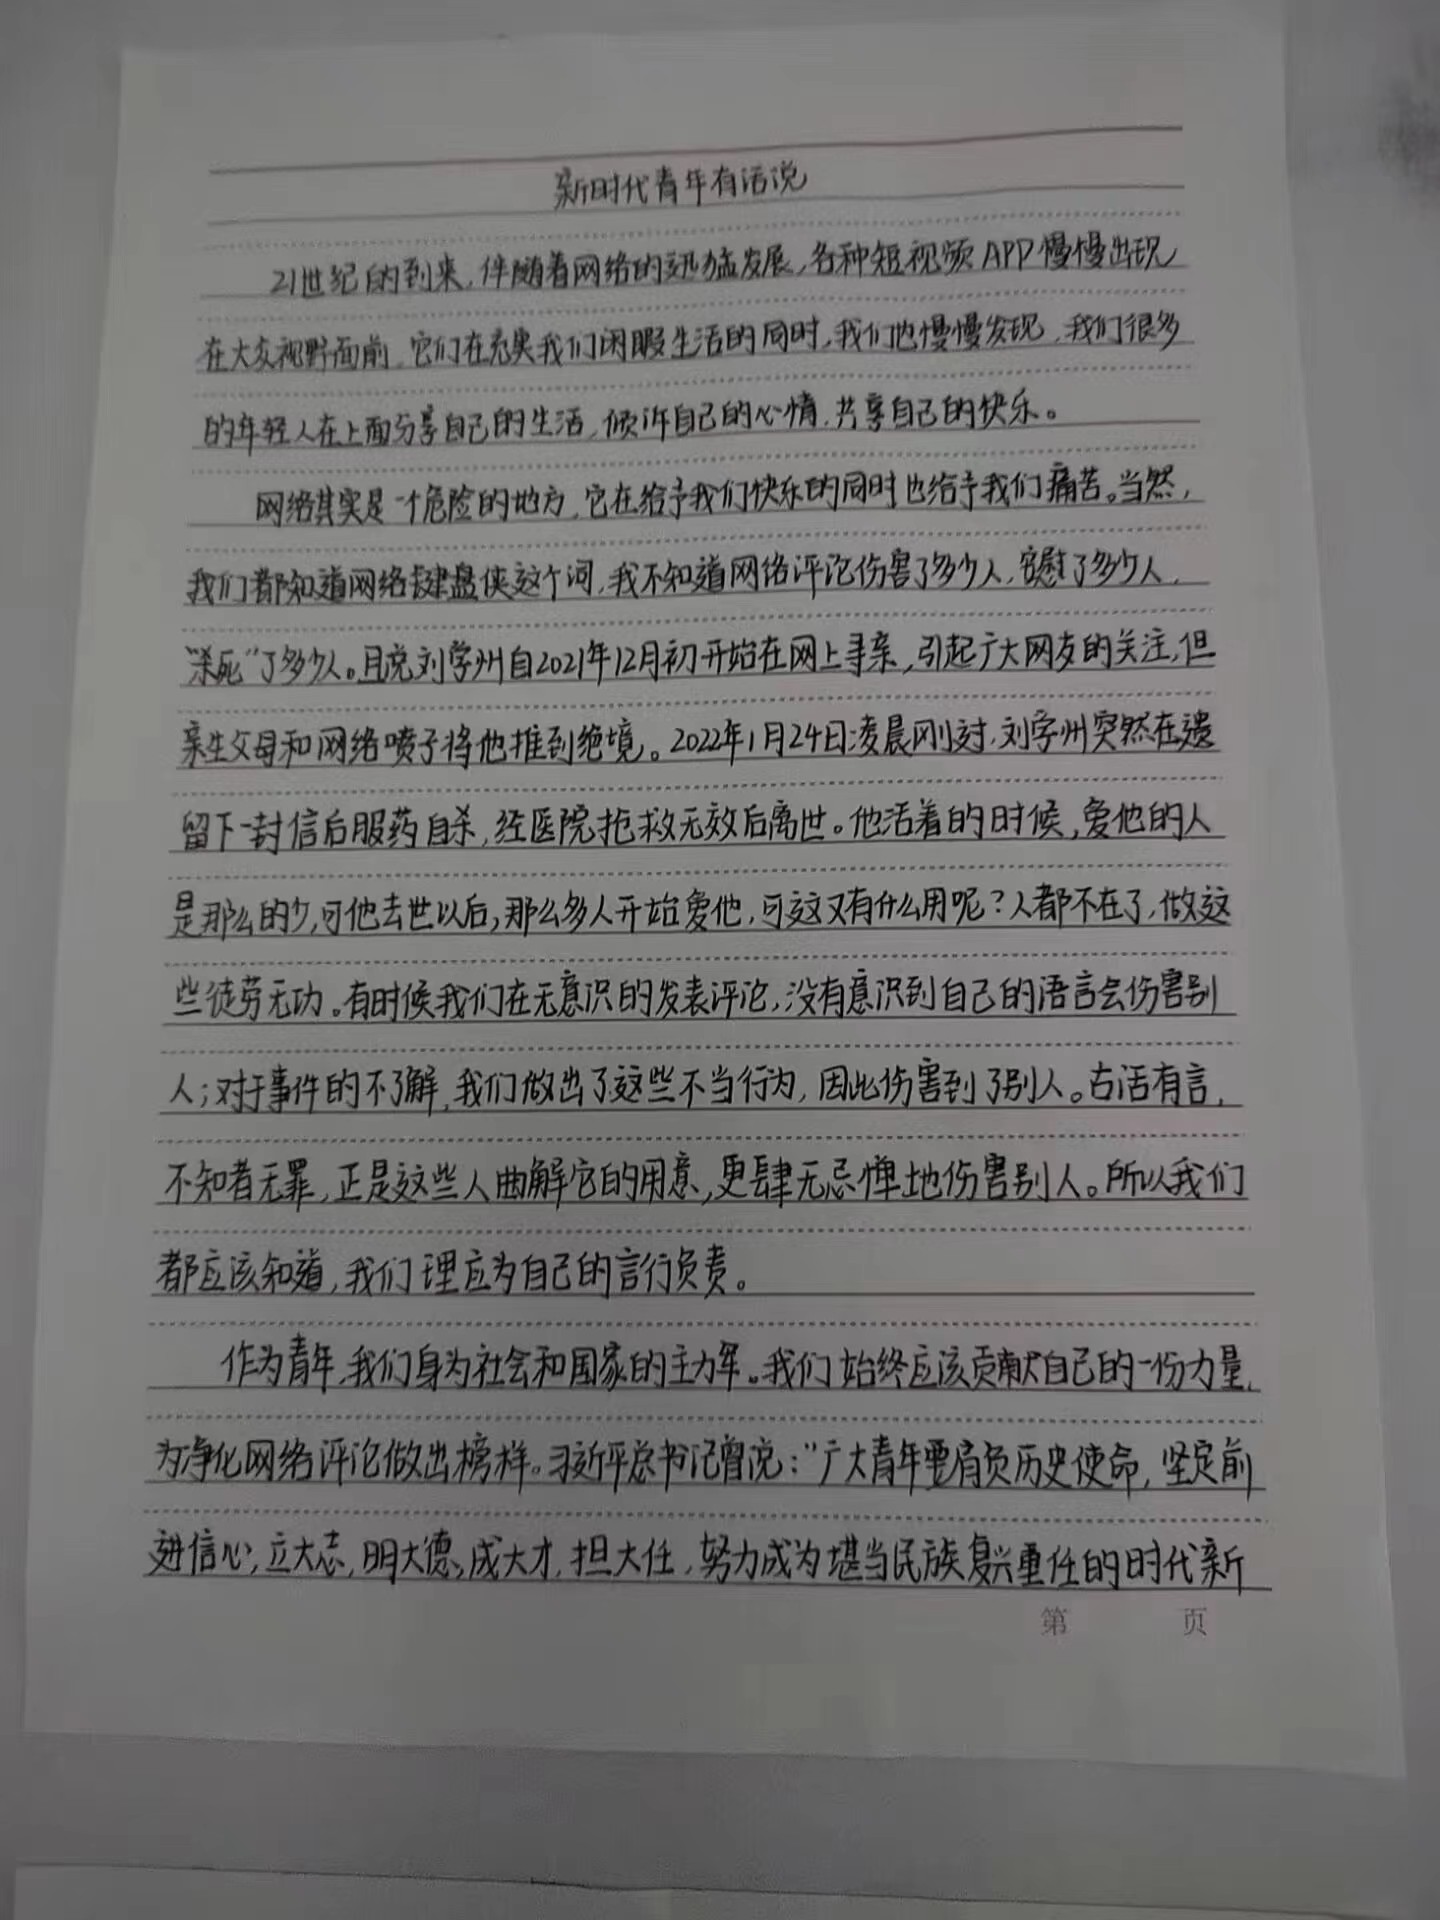 新时代青年有话说
21世纪的到来，伴随着网络的迅猛发展，各种短视频APP慢慢出现
在大众视野面前，它们在充实我们闲暇生活的同时，我们也慢慢发现，我们很多
的年轻人在上面分享自己的生活，倾诉自己的心情，共享自己的快乐。
网络其实是一个危险的地方，它在给予我们快乐的同时也给予我们痛苦。当然，
我们都知道网络键盘侠这个词，我不知道网络评论伤害了多少人，安慰了多少人，
“杀死”了多少人。且说刘学州自2021年12月初开始在网上寻亲，引起广大网友的关注，但
亲生父母和网络喷子将他推到绝境。2022年1月24日凌晨刚过，刘学州突然在遗
留下一封信后服药自杀，经医院抢救无效后离世。他活着的时候，爱他的人
是那么的少，可他去世以后，那么多人开始爱他，可这又有什么用呢？人都不在了，做这
些徒劳无功。有时候我们在无意识的发表评论，没有意识到自己的语言会伤害别
人；对于事件的不了解，我们做出了这些不当行为，因此伤害到了别人。古话有言，
不知者无罪，正是这些人曲解它的用意，更肆无忌惮地伤害别人。所以我们
都应该知道，我们理应为自己的言行负责。
作为青年，我们身为社会和国家的主力军。我们始终应该贡献自己的一份力量，
为净化网络评论做出榜样。习近平总书记曾说：“广大青年要肩负历史使命，坚定前
进信心，立大志，明大德，成大才，担大任，努力成为堪当民族复兴重任的时代新
第 页